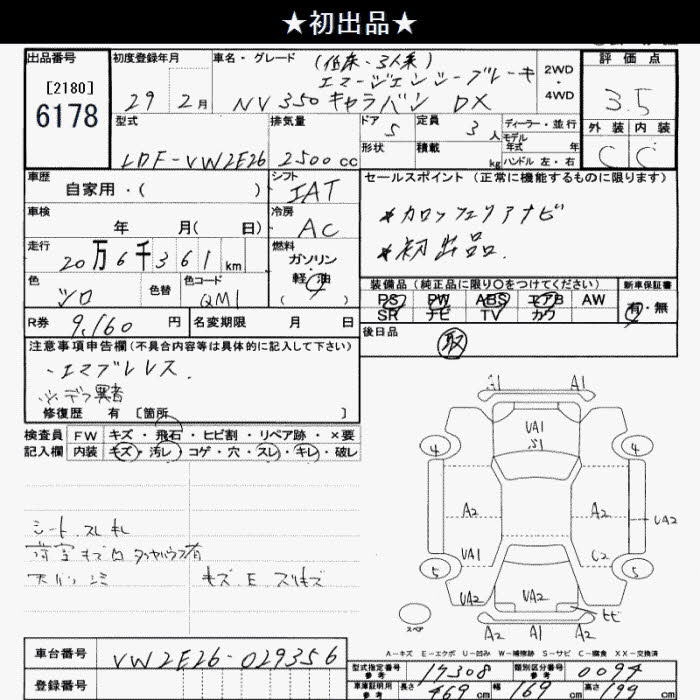 ★初出品★
出品番号
[2180]
6178
初度登録年月
29 2月
車名・グレード
(低床・3人乗)
エマージェンシーブレーキ
NV350キャラバン DX
2WD
・
4WD
評価点
3.5
外装 内装
C C
型式
LDF-VW2E26
排気量
2500cc
ドア
5
定員
3人
ディーラー・並行
モデル
年式 年
形状
積載
kg
ハンドル 左・右
車歴
自家用・( )
シフト
IAT
セールスポイント (正常に機能するものに限ります)
*カロッツェリアナビ
*初出品.
車検
年 月( 日)
冷房
AC
走行
20万6千361km
燃料
ガソリン
・
軽油
( )
色
シロ
色替
色コード
QM1
装備品 (純正品に限り○をつけてください)
PS PW ABS エアB AW
SR ナビ TV カワ
新車保証書
有・無
R券
9,160円
名変期限 月 日
後日品
取
注意事項申告欄(不具合内容等は具体的に記入して下さい)
・エマブレレス.
修復歴 有 [箇所 ]
検査員
記入欄
FW キズ・飛石・ヒビ割・リペア跡・×要
内装 キズ・汚レ・コゲ・穴・スレ・キレ・破レ
シート.スレ キレ
A1 A1
UA1
S1
4 4
A2 A2
UA2
UA1 C2
5 5
UA2 UA2
ヒビ
スペア
A2 A1 A2
A-キズ E-エクボ U-凹み W-補修跡 S-サビ C-腐食 XX-交換済
車台番号
VW2E26-029356
登録番号
型式指定番号
参考
17308
類別区分番号
参考
0094
車庫証明用
参考
長さ
469cm
幅
169cm
高さ
199cm